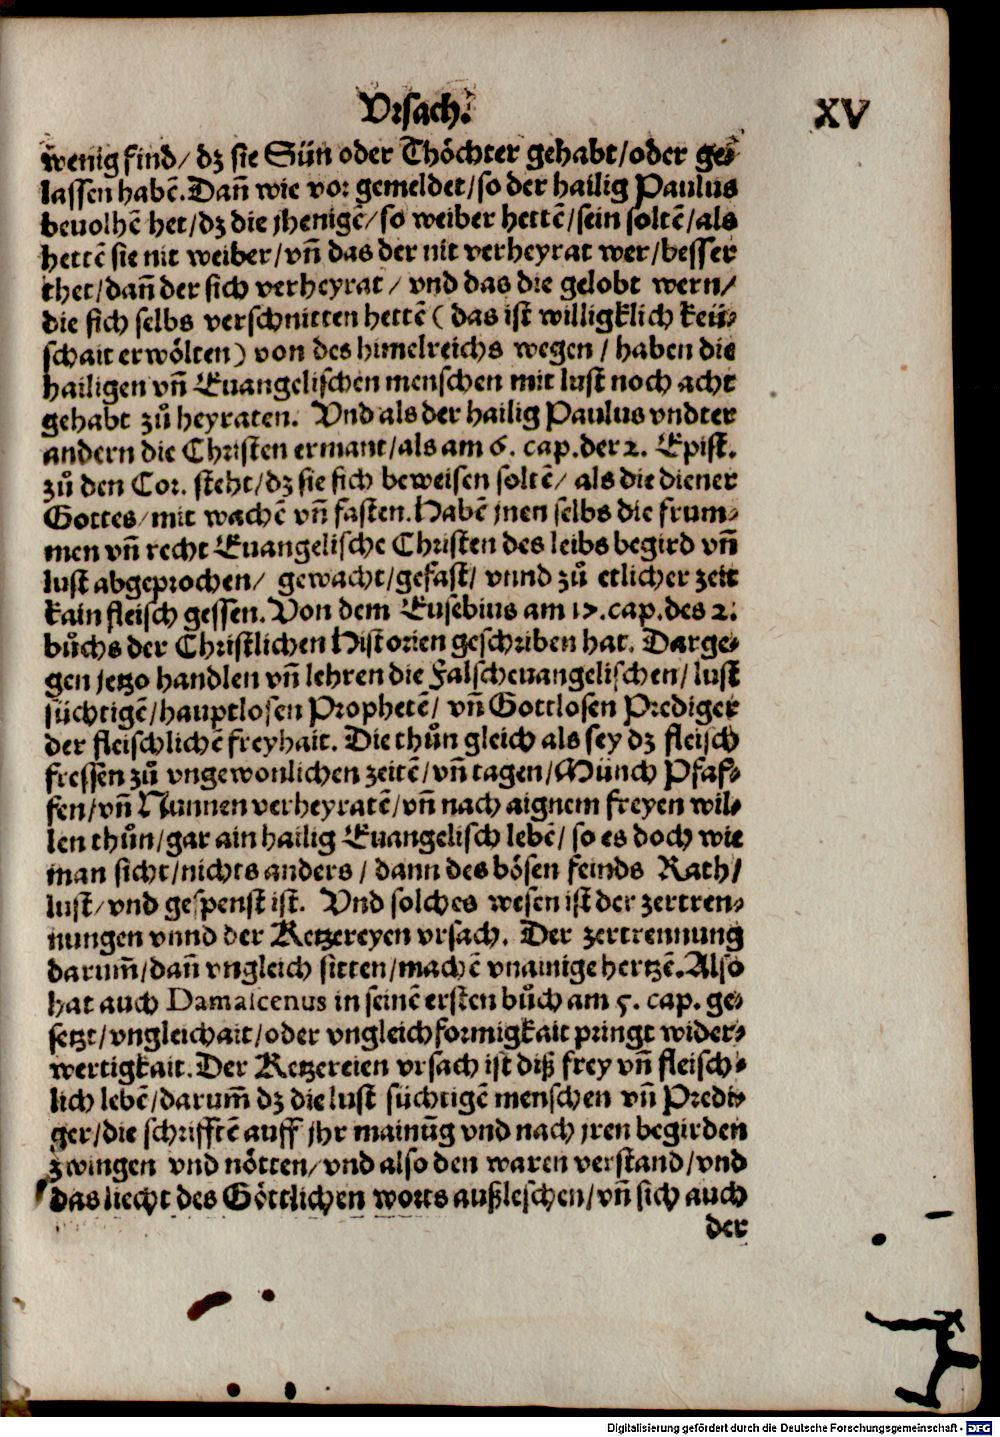 Vrsach. XV
wenig find/ dz sie Sün oder Thöchter gehabt/oder ge-
lassen habē. Dañ wie vor gemeldet/so der hailig Paulus
beuolhē het/dz die jhenigē/so weiber hettē/sein soltē/als
hettē sie nit weiber/vñ das der nit verheyrat wer/besser
thet/dañ der sich verheyrat/ vnd das die gelobt wern/
die sich selbs verschnitten hettē (das ist willigklich keü-
schait erwölten) von des himelreichs wegen/ haben die
hailigen vñ Euangelischen menschen mit lust noch acht
gehabt zů heyraten. Vnd als der hailig Paulus vndter
andern die Christen ermant/als am 6. cap. der 2. Epist.
zů den Cor. steht/dz sie sich beweisen soltē/ als die diener
Gottes/mit wachē vñ fasten. Habē jnen selbs die frum-
men vñ recht Euangelische Christen des leibs begird vñ
lust abgeprochen/ gewacht/gefast/ vnnd zů etlicher zeit
kain fleisch gessen. Von dem Eusebius am 17. cap. des 2.
bůchs der Christlichen Historien geschriben hat. Darge-
gen jetzo handlen vñ lehren die Falscheuangelischen/ lust
süchtigē/hauptlosen Prophetē/ vñ Gottlosen Prediger
der fleischlichē freyhait. Die thůn gleich als sey dz fleisch
fressen zů vngewonlichen zeitē/vñ tagen/Münch Pfaf-
fen/vñ Nunnen verheyratē/vñ nach aignem freyen wil-
len thůn/gar ain hailig Euangelisch lebē/ so es doch wie
man sicht/nichts anders/ dann des bösen feinds Rath/
lust/vnd gespenst ist. Vnd solches wesen ist der zertren-
nungen vnnd der Ketzereyen vrsach. Der zertrennung
darum̃/dañ vngleich sitten/machē vnainige hertzē. Also
hat auch Damascenus in seinē ersten bůch am 5. cap. ge-
setzt/vngleichait/oder vngleichformigkait pringt wider-
wertigkait. Der Ketzereien vrsach ist diß frey vñ fleisch-
lich lebē/darum̃ dz die lust süchtigē menschen vñ Predi-
ger/die schrifftē auff jhr mainūg vnd nach jren begirden
zwingen vnd nötten/vnd also den waren verstand/vnd
das liecht des Göttlichen worts außleschen/vñ sich auch
der
Digitalisierung gefördert durch die Deutsche Forschungsgemeinschaft - DFG